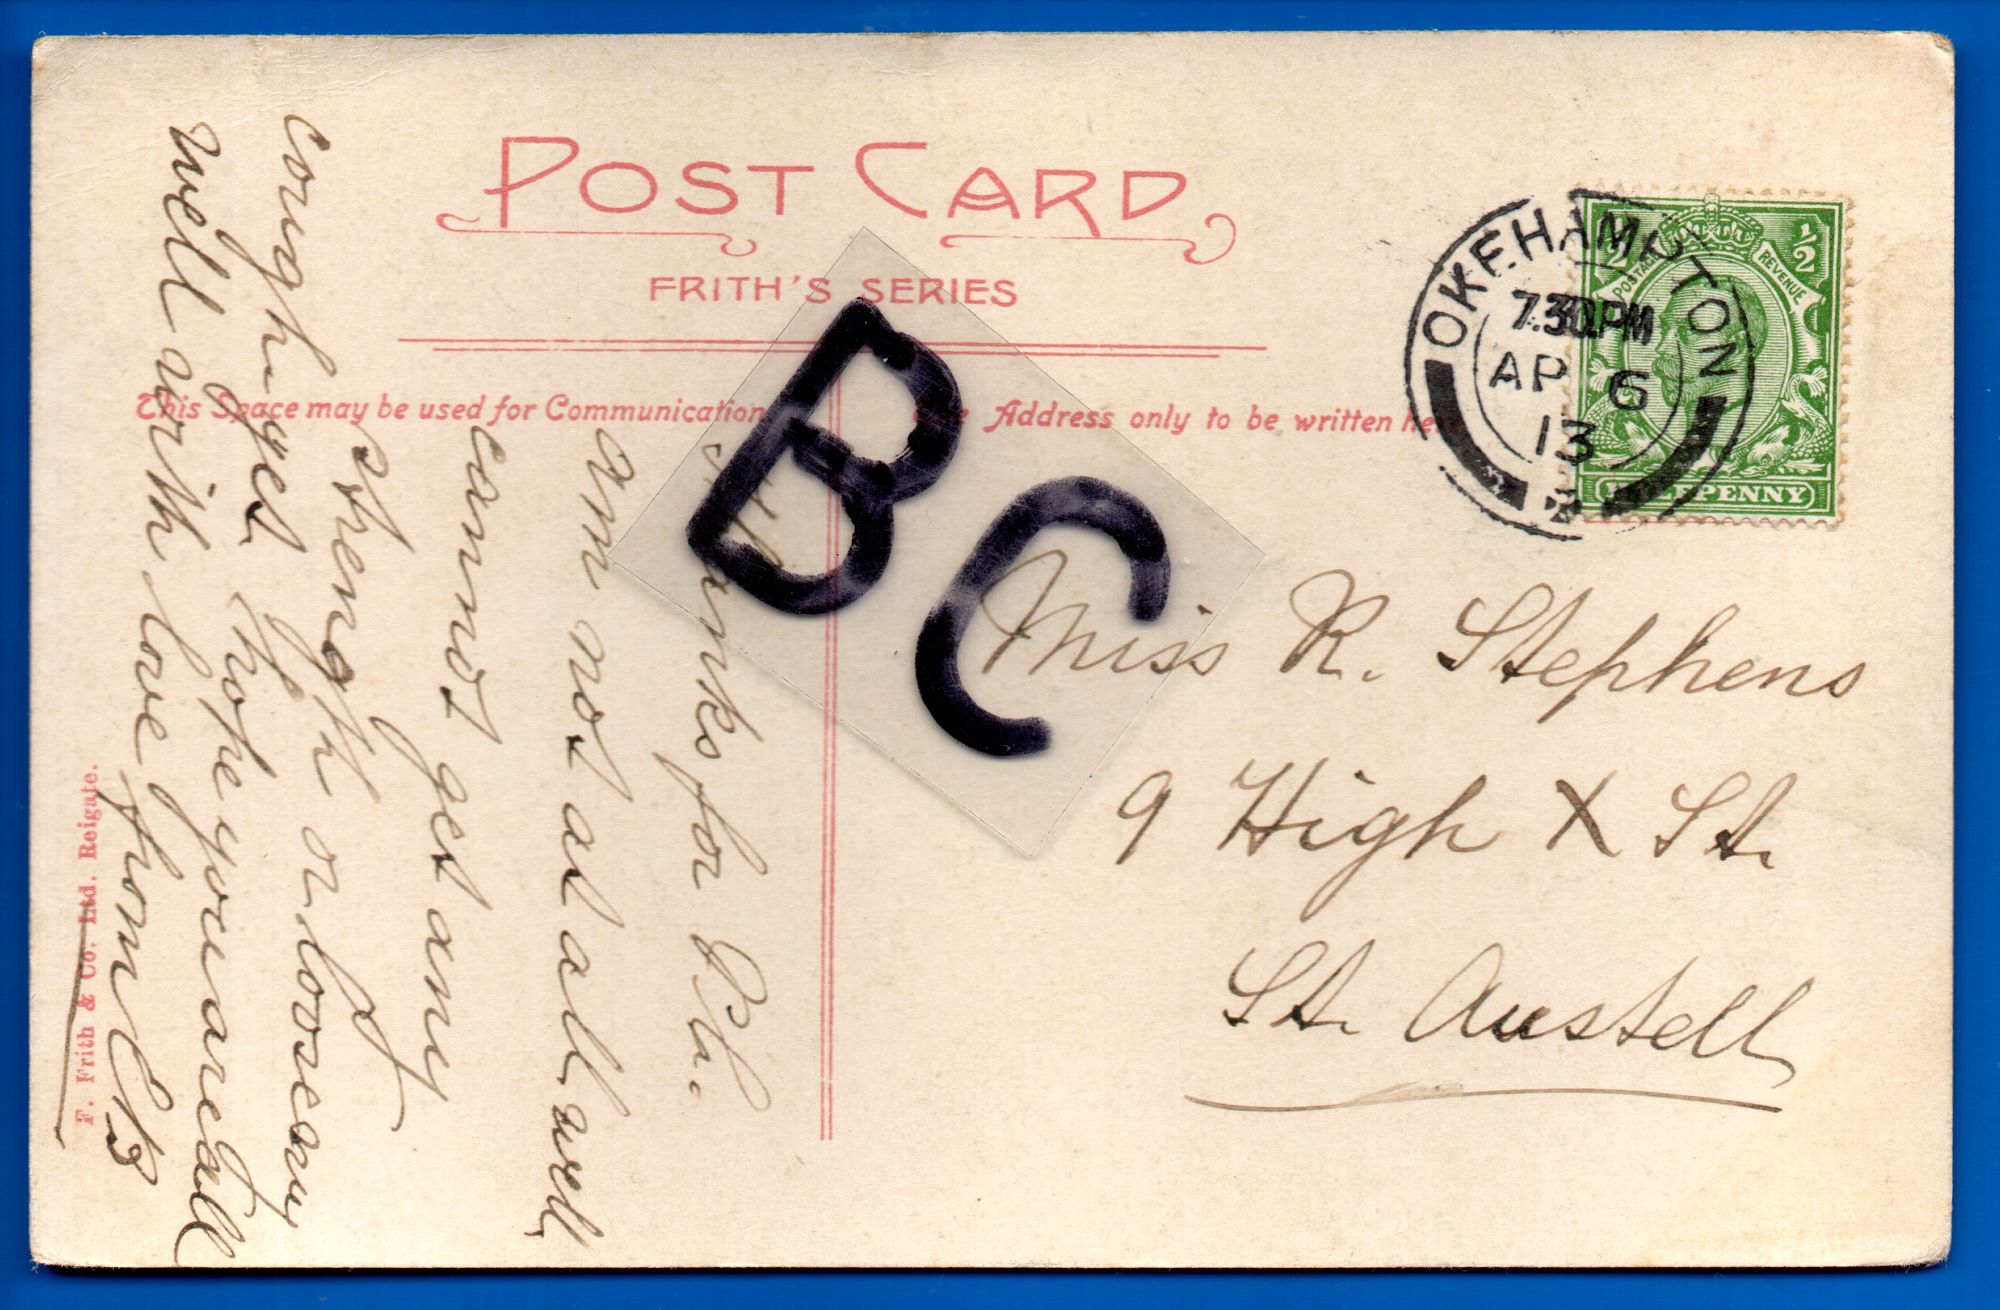 POST CARD
FRITH'S SERIES
This Space may be used for Communication
Address only to be written here
OKEHAMPTON
7.30PM
AP 6
13
½ ½
POSTAGE REVENUE
HALFPENNY
BC
Miss R. Stephens
9 High X St.
St. Austell
for P.C.
am not at all well
cannot get any
strength or loose my
cough yet hope you are all
well with love from E B
F. Frith & Co. Ltd. Reigate.